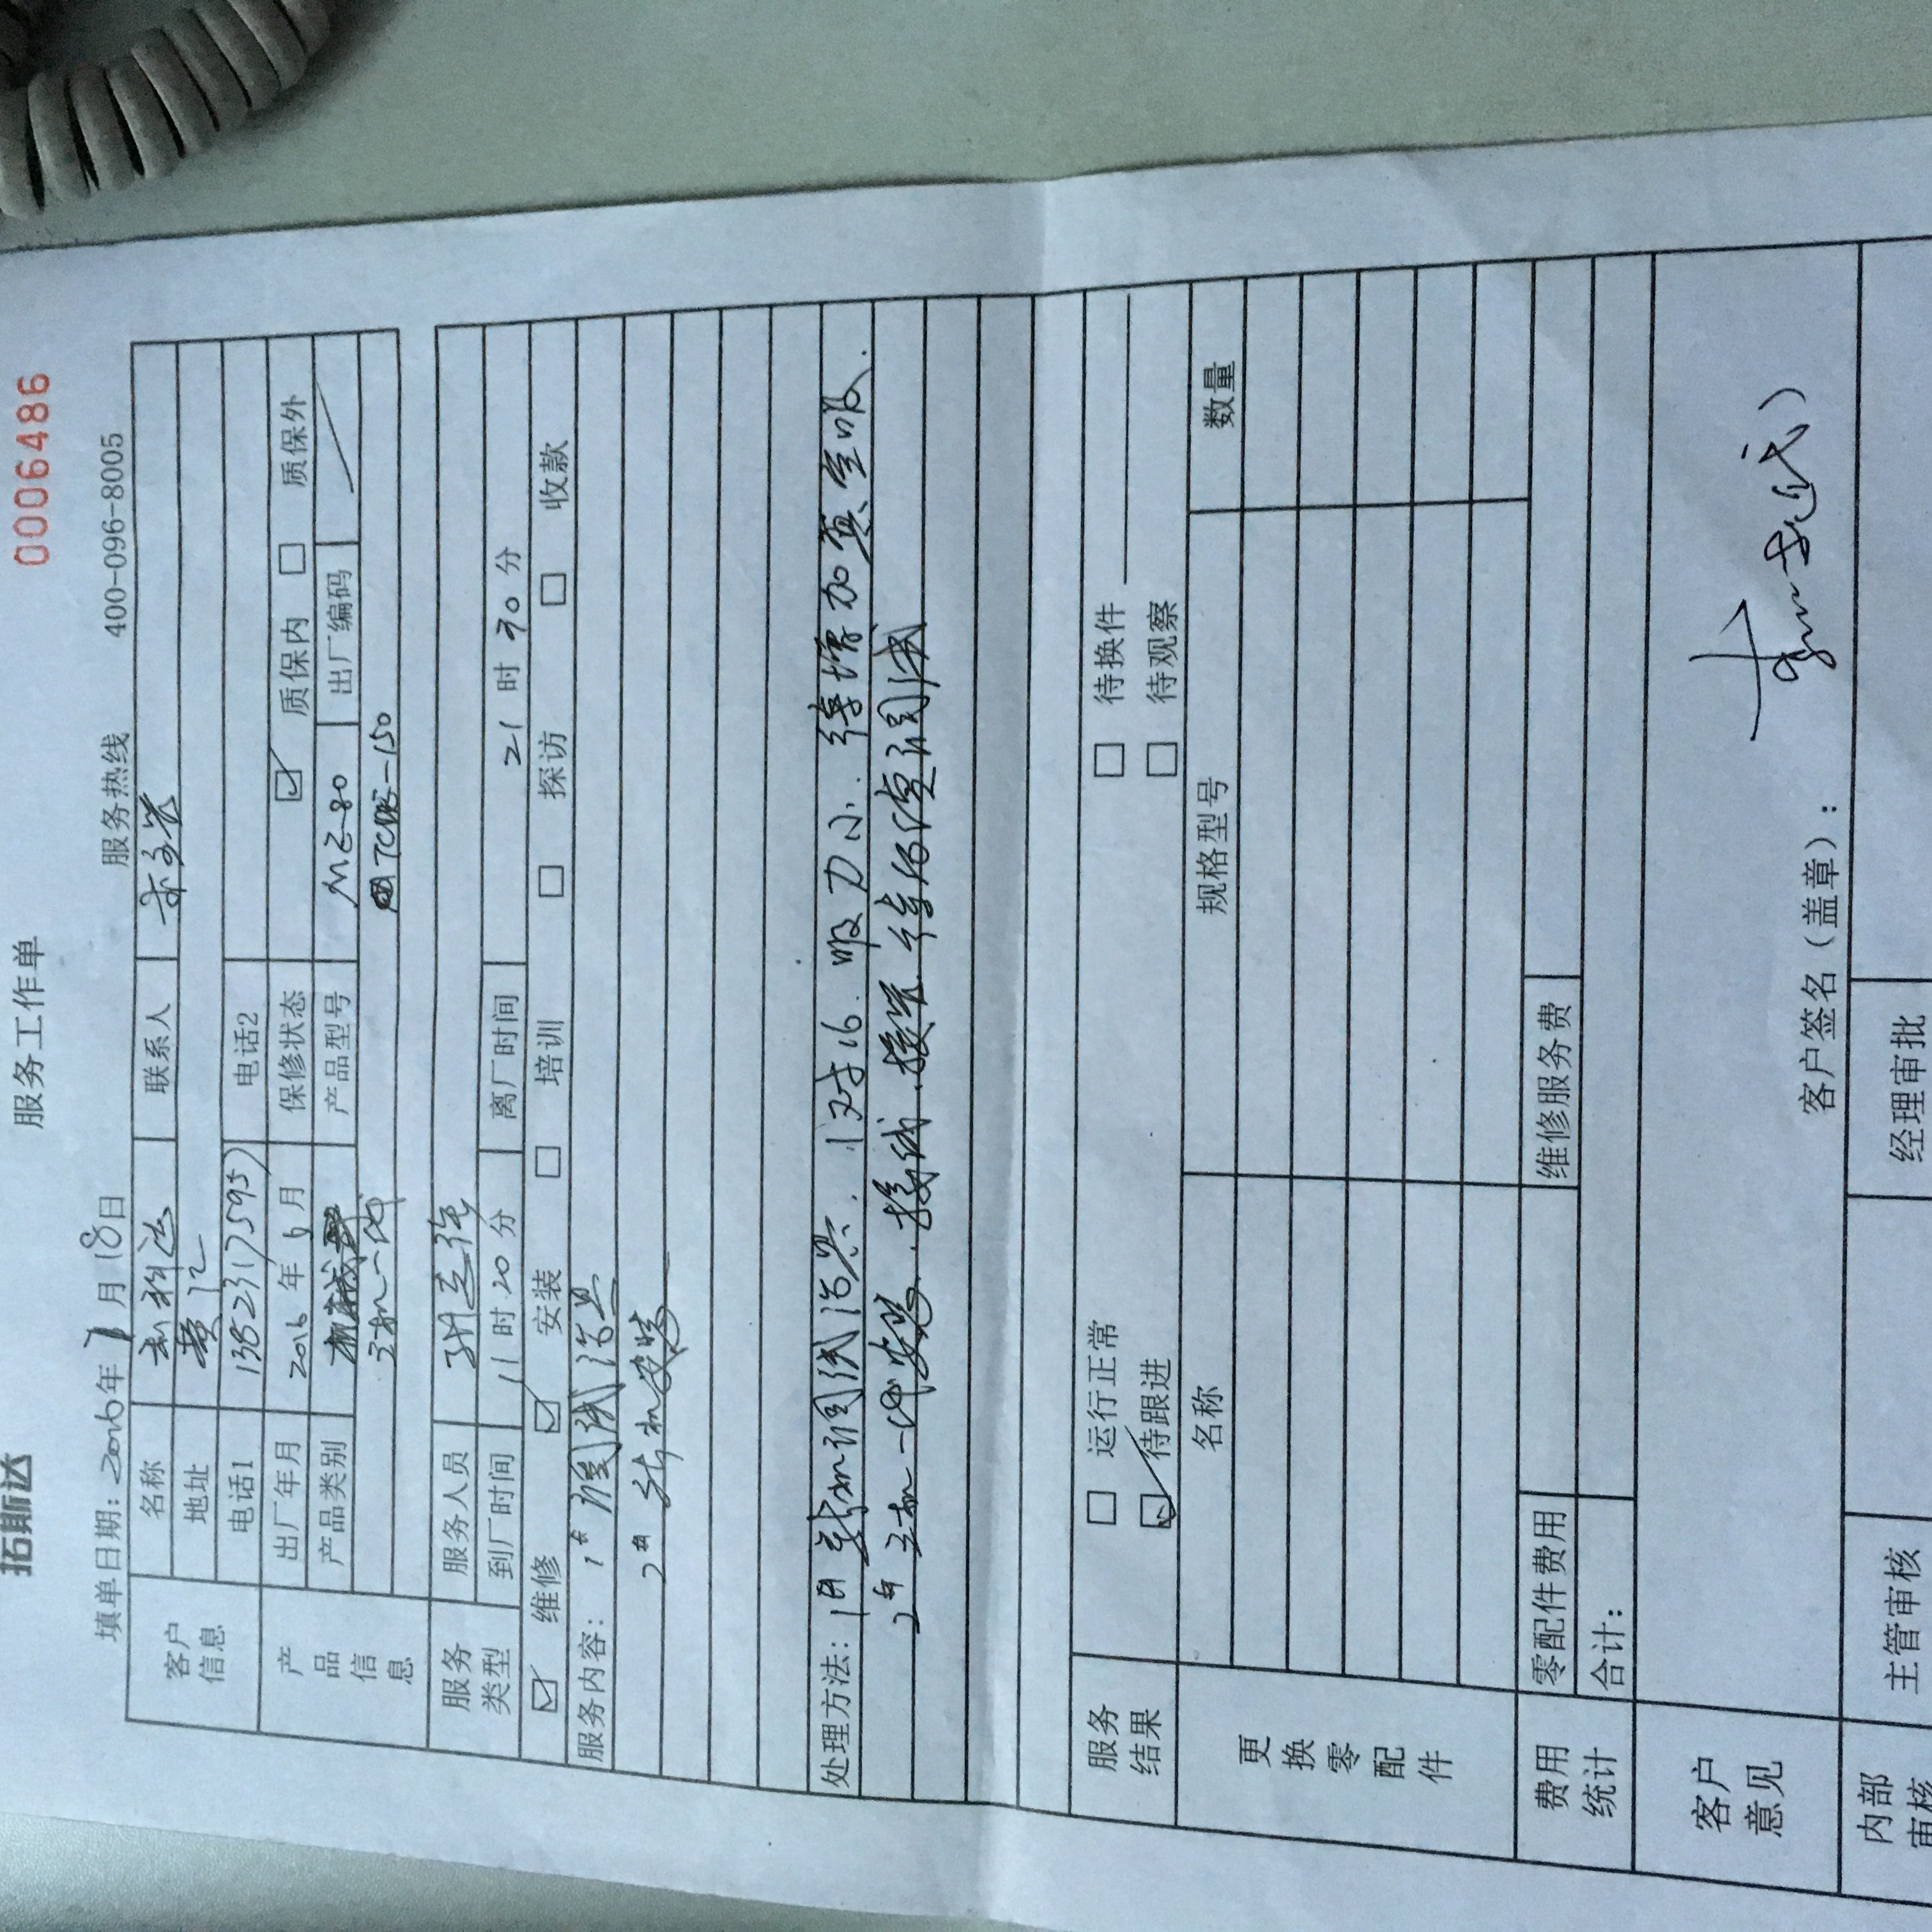 拓斯达
服务工作单
0006486
填单日期：2016年7月18日 服务热线 400-096-8005
客户信息
名称 联系人
地址 黄江
电话1 13823117595 电话2
产品信息
出厂年月 2016年6月 保修状态 ☑ 质保内 □ 质保外
产品类别 产品型号 MZ-80 出厂编码
三机一体 -150
服务类型
服务人员
到厂时间 11时20分 离厂时间 21时30分
☑ 维修 ☑ 安装 □ 培训 □ 探访 □ 收款
服务内容：1# 调试治具
2# 新机安装
处理方法：1# 调试治具，1对16，吸力小，待增加真空吸．
2# 三机一体安装，接线，接管，待后续调试
服务结果
□ 运行正常 □ 待换件
☑ 待跟进 □ 待观察
更换零配件
名称 规格型号 数量
费用统计
零配件费用 维修服务费
合计：
客户意见
客户签名（盖章）：
内部审核
主管审核 经理审批